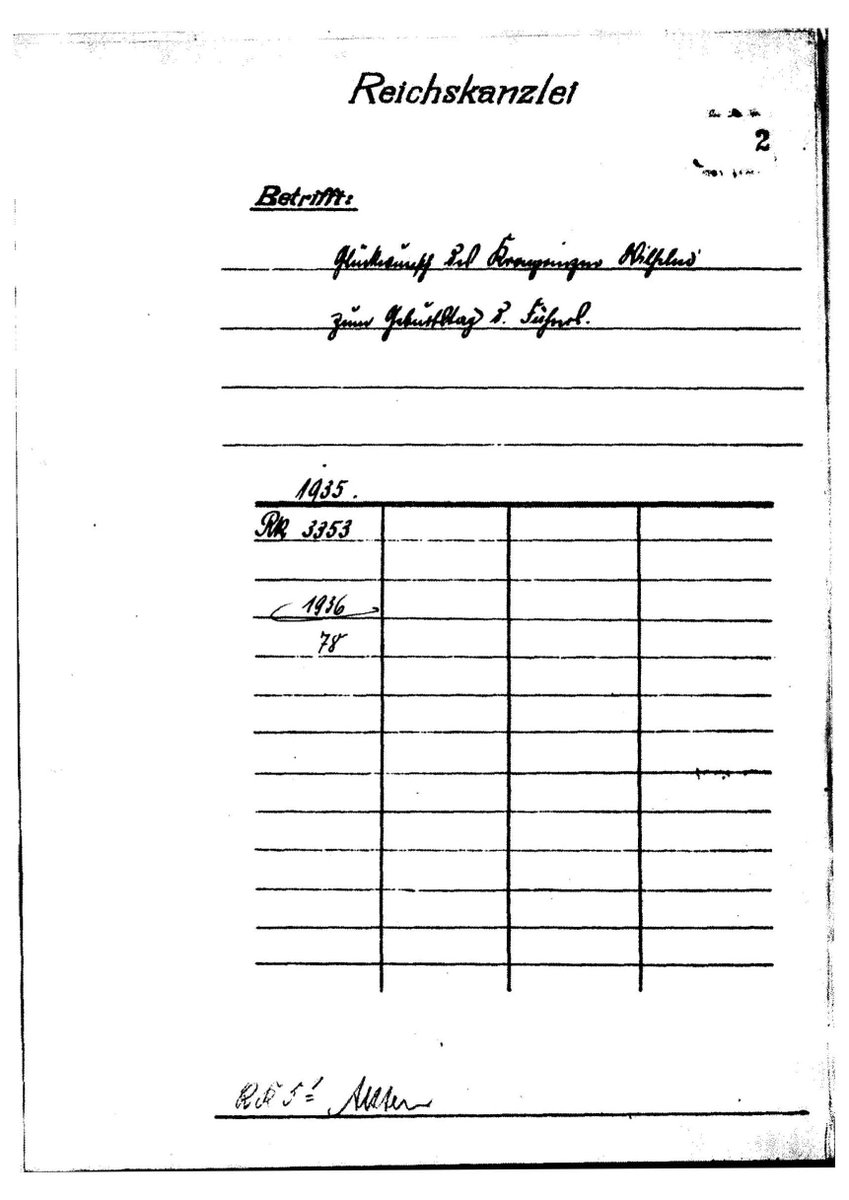 Reichskanzlei
2
Betrifft:
Glückwunsch des Kronprinzen Wilhelms
zum Geburtstag d. Führers.
1935.
Rk 3353
1936
78